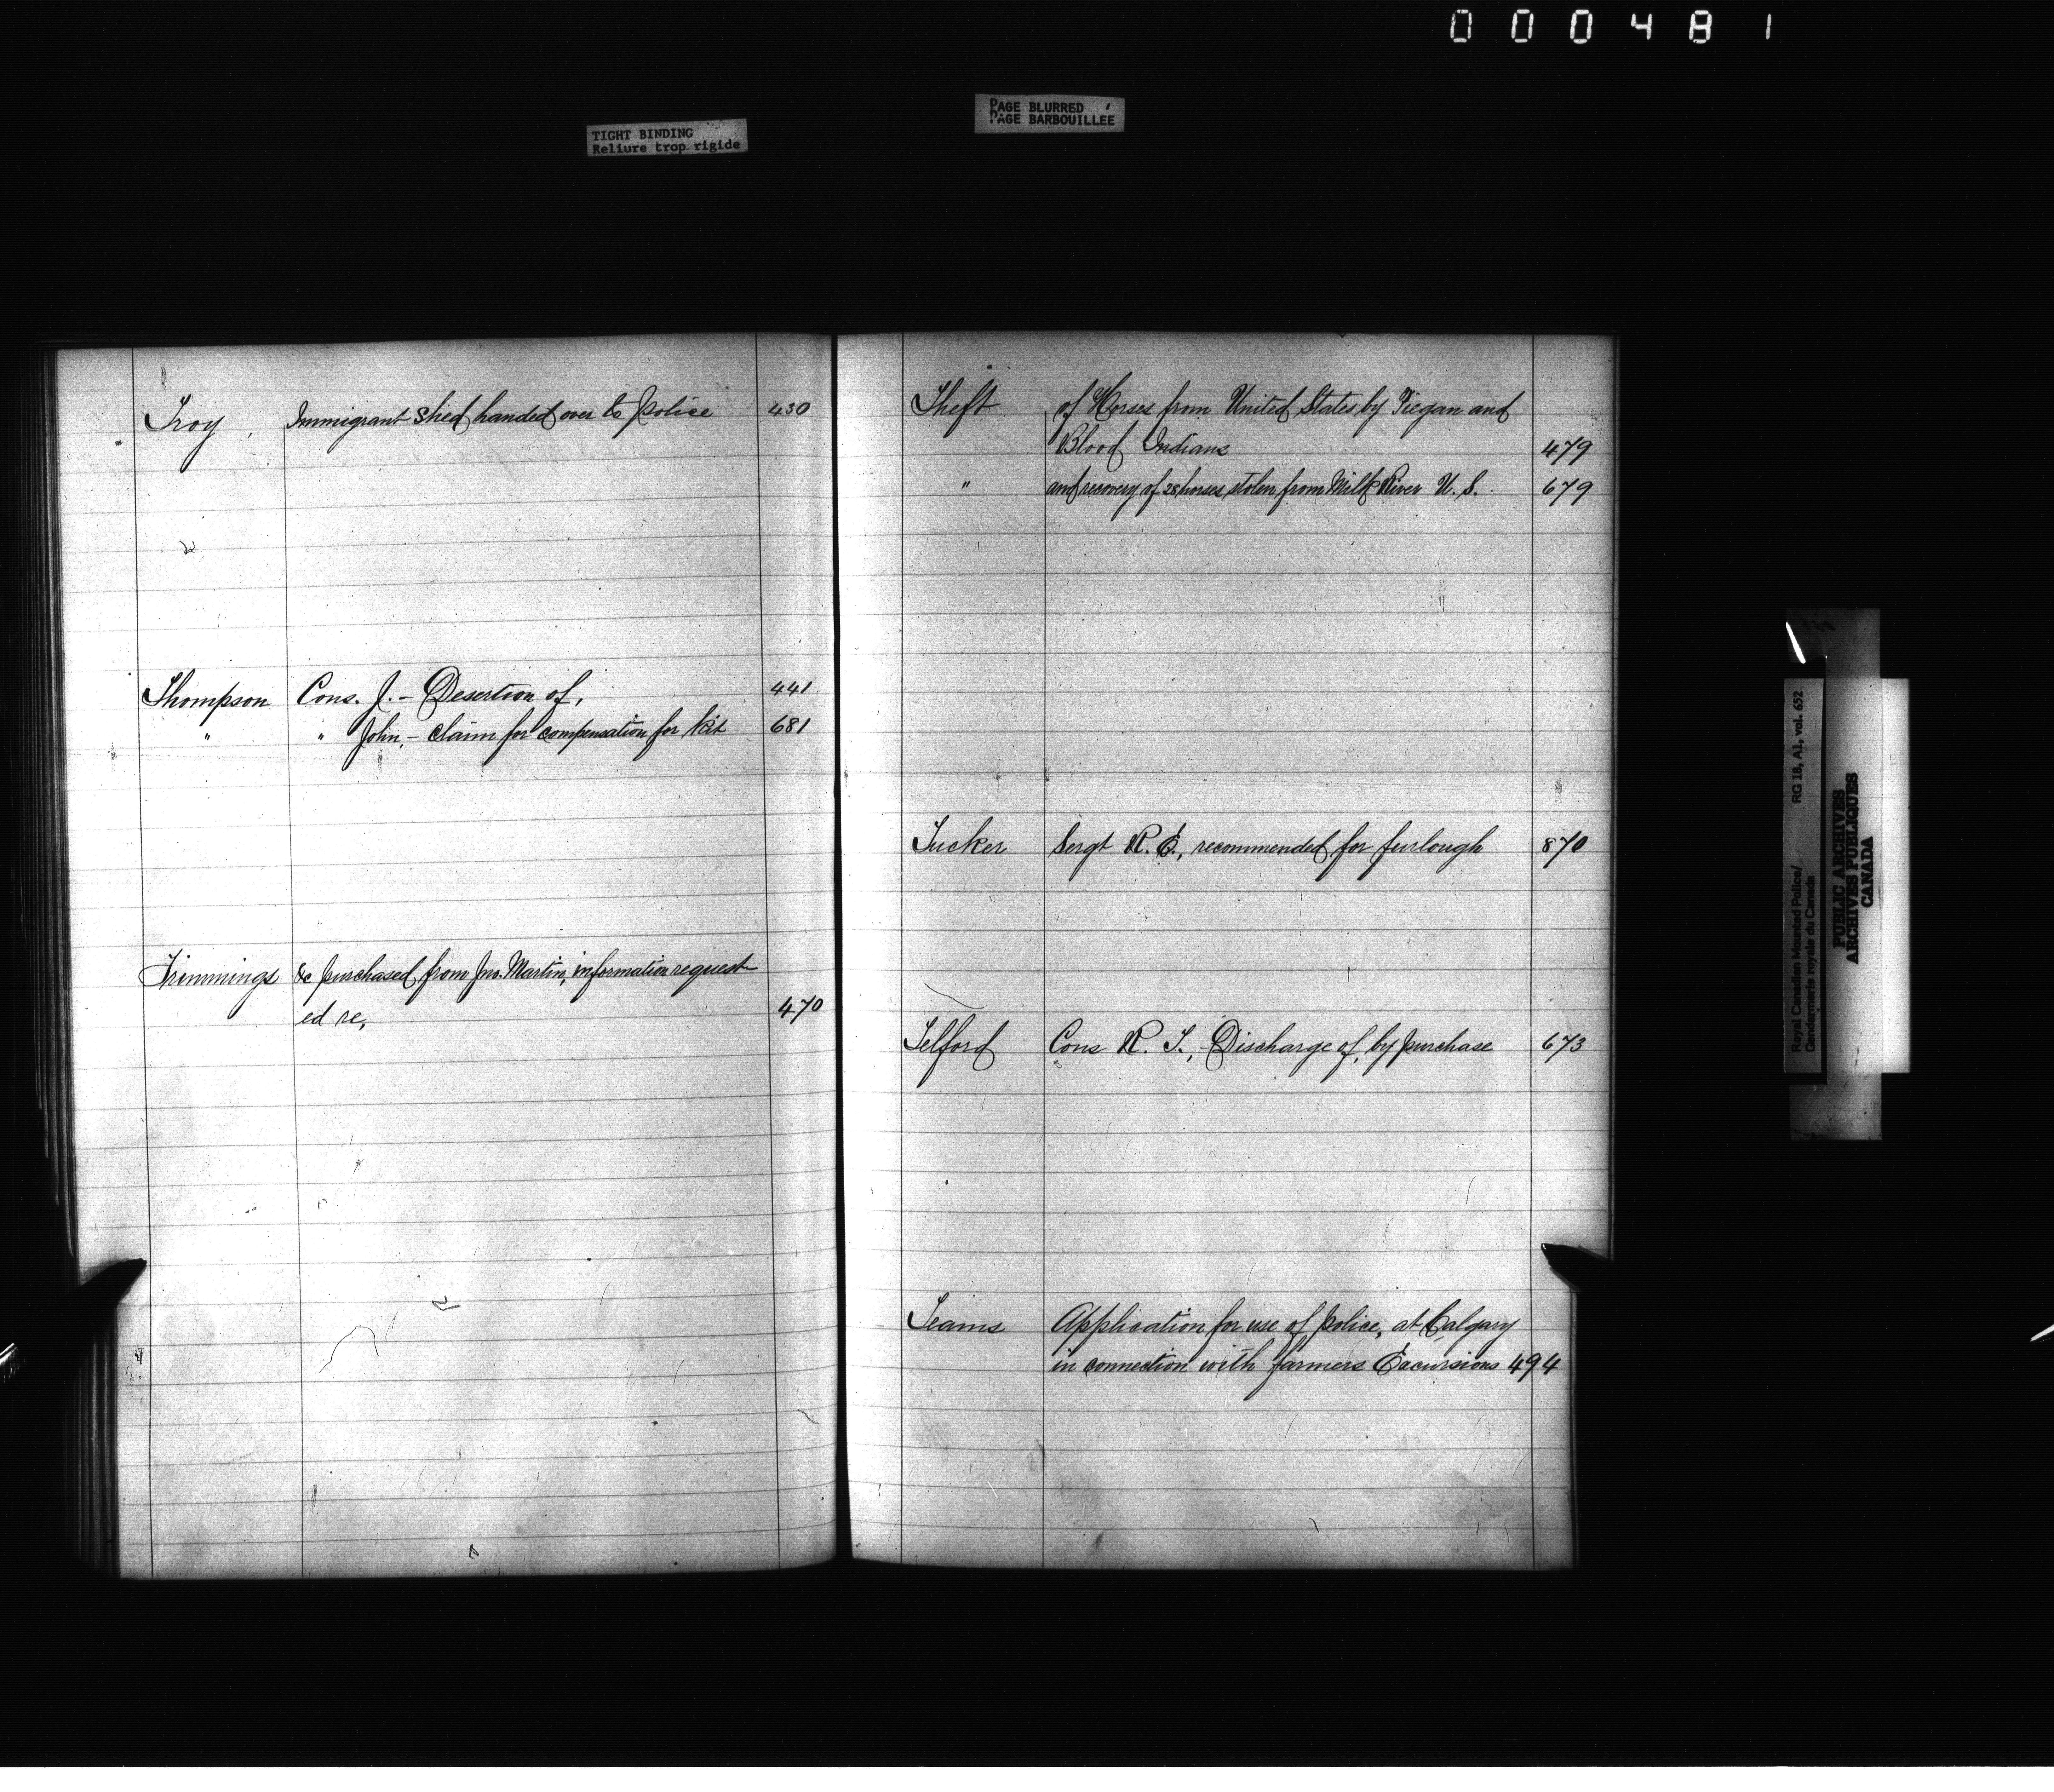 000481
TIGHT BINDING
Reliure trop rigide
PAGE BLURRED
PAGE BARBOUILLÉE
Troy, Immigrant Shed handed over to Police 430
Thompson Cons. J. - Desertion of, 441
" " John, - claim for compensation for kit 681
Trimmings &c purchased from Jno. Martin, information request-
ed re, 470
Theft of Horses from United States by Piegan and
Blood Indians 479
" and recovery of 28 horses stolen from Milk River U. S. 679
Tucker Sergt R. E., recommended for furlough 870
Telford Cons R. T., - Discharge of, by purchase 673
Teams Application for use of Police, at Calgary
in connection with farmers Excursions 494
Royal Canadian Mounted Police/ RG 18, A1, vol. 652
Gendarmerie royale du Canada
PUBLIC ARCHIVES
ARCHIVES PUBLIQUES
CANADA